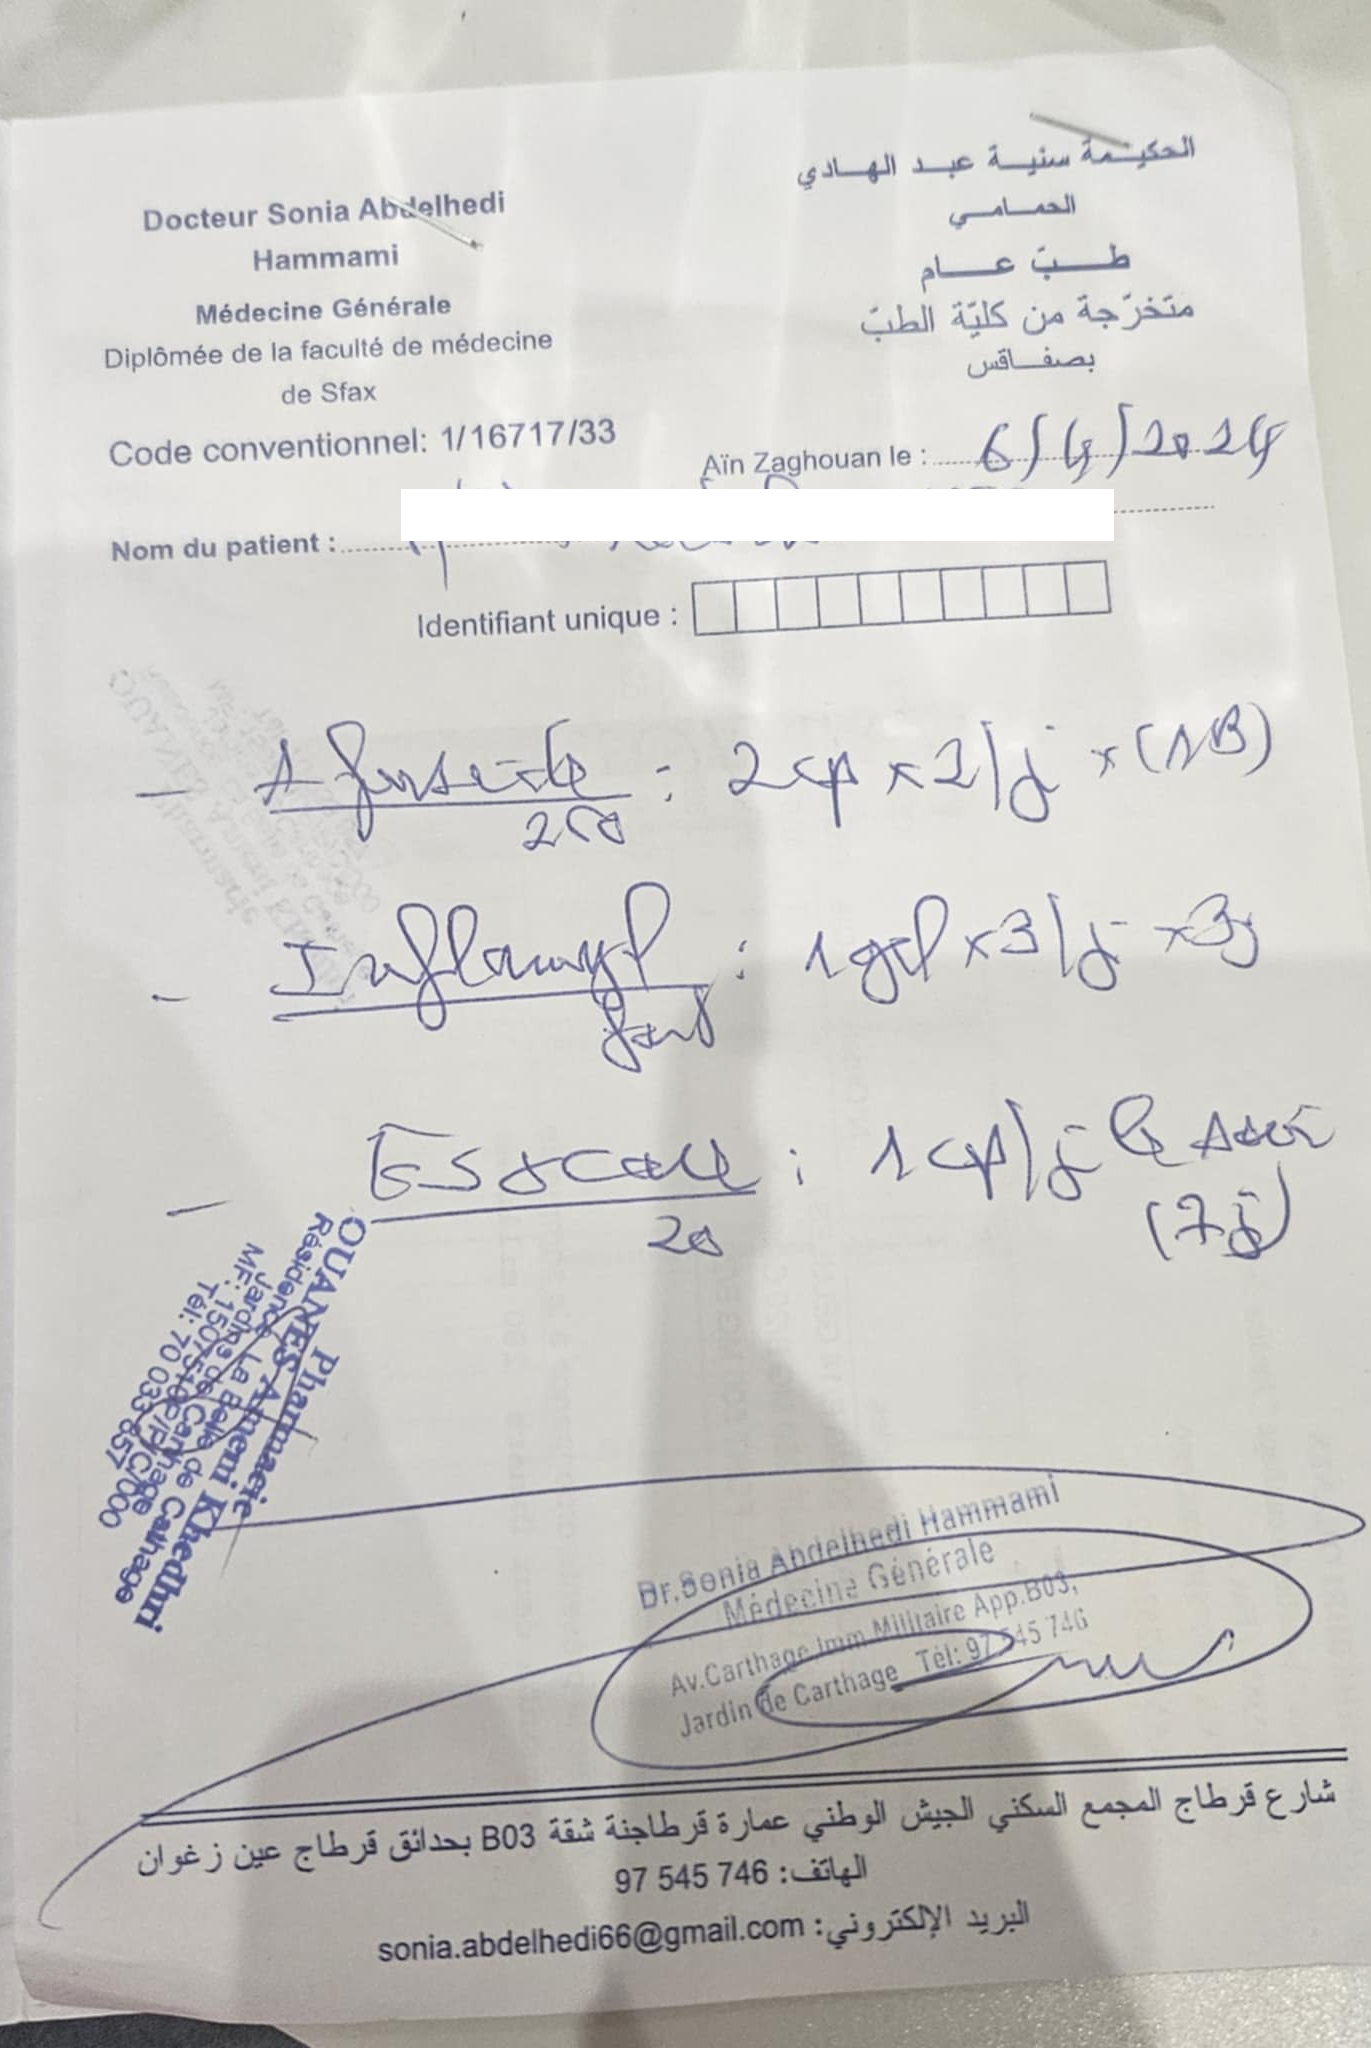 Docteur Sonia Abdelhedi
Hammami
Médecine Générale
Diplômée de la faculté de médecine
de Sfax
Code conventionnel: 1/16717/33
الحكيمة سنية عبد الهادي
الحمامي
طب عام
متخرّجة من كليّة الطبّ
بصفاقس
Aïn Zaghouan le : 6/4/2024
Nom du patient :
Identifiant unique :
- : 2cp x 2/j x (1B)
250
- Inflamyl : 1gel x 3/j x 3j
fort
- : 1cp/j le soir
20
(7j)
Pharmacie
OUANES Ameni Khedhri
Résidence La Belle de Carthage
Jardins de Carthage
Tél: 70 033 657
Dr.Sonia Abdelhedi Hammami
Médecine Générale
Av.Carthage Imm Militaire App.B03,
Jardin de Carthage Tél: 97 545 746
شارع قرطاج المجمع السكني الجيش الوطني عمارة قرطاجنة شقة B03 بحدائق قرطاج عين زغوان
الهاتف: 97 545 746
البريد الإلكتروني: sonia.abdelhedi66@gmail.com